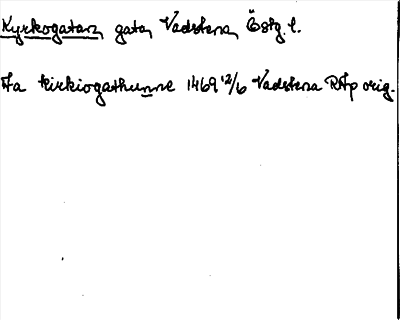 Kyrkogatan, gata, Vadstena, Östg l.
Fa kirkiogathunne 1469 12/6 Vadstena RAp orig.